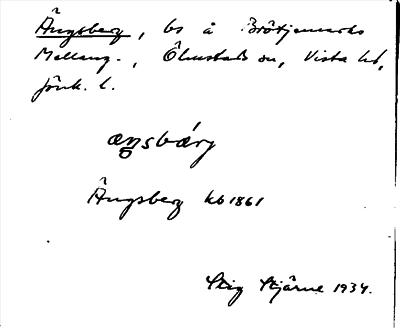 Ängsberg, bs å Brötjemarks
Mellang., Ölmstads sn, Vista hd,
Jönk. l.
æŋsbærj
Ängsberg kb 1861
Stig Stjärne 1934.